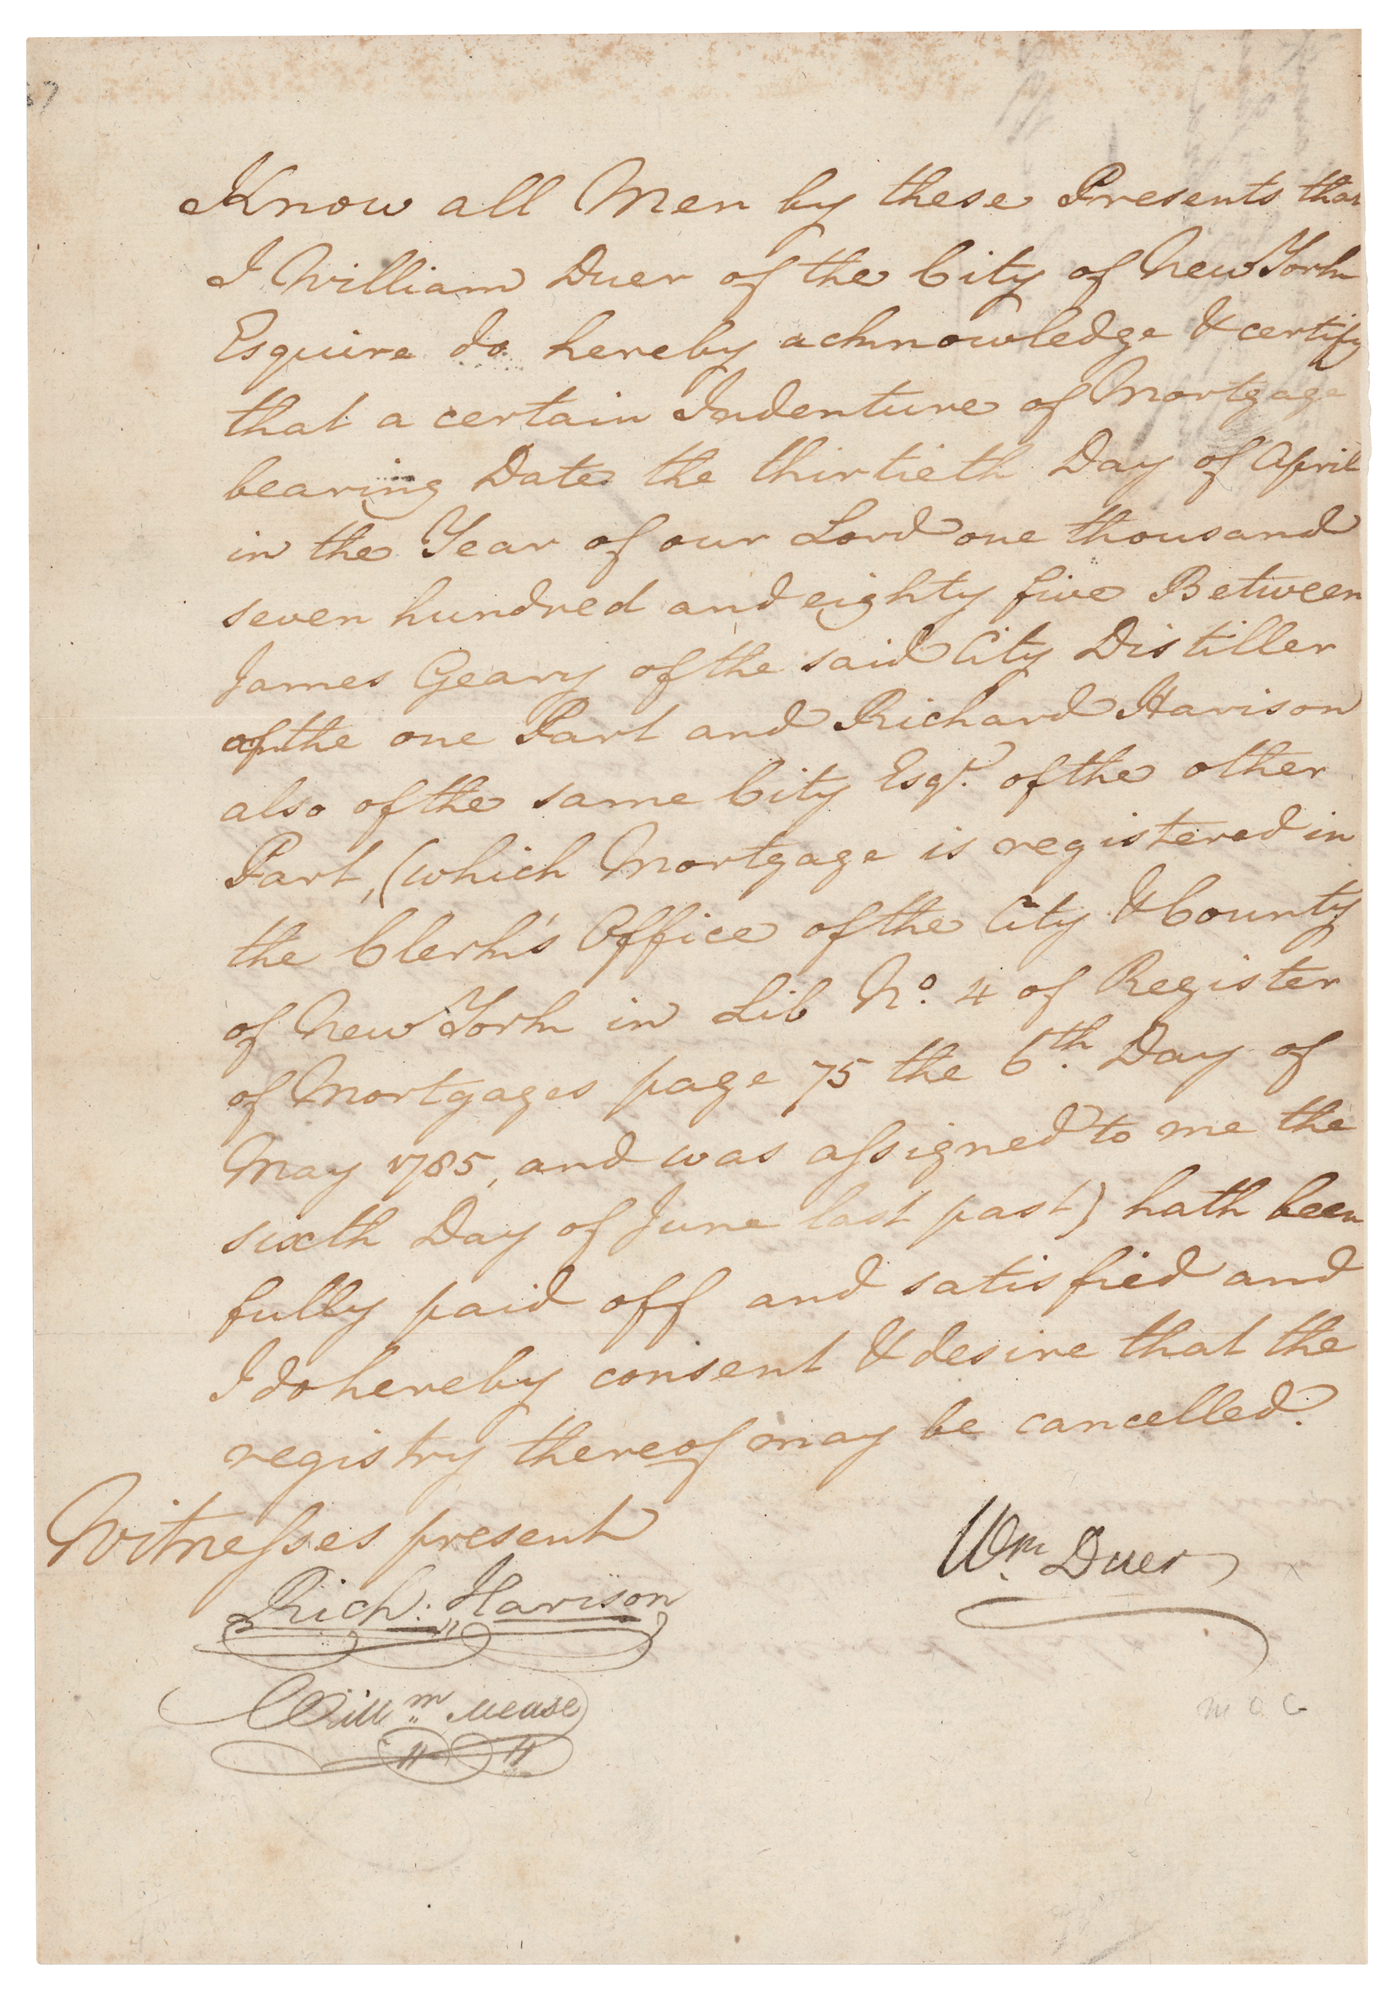 Know all Men by these Presents that
I William Duer of the City of New York
Esquire do hereby acknowledge & certify
that a certain Indenture of Mortgage
bearing Date the thirtieth Day of April
in the Year of our Lord one thousand
seven hundred and eighty five Between
James Geary of the said City Distiller
of the one Part and Richard Harison
also of the same City Esqr. of the other
Part, (which Mortgage is registered in
the Clerk's Office of the City & County
of New York in Lib No. 4 of Register
of Mortgages page 75 the 6th. Day of
May 1785, and was assigned to me the
sixth Day of June last past) hath been
fully paid off and satisfied and
I do hereby consent & desire that the
registry thereof may be cancelled.
Witnesses present
Wm. Duer
Rich: Harison
Willm. Mease